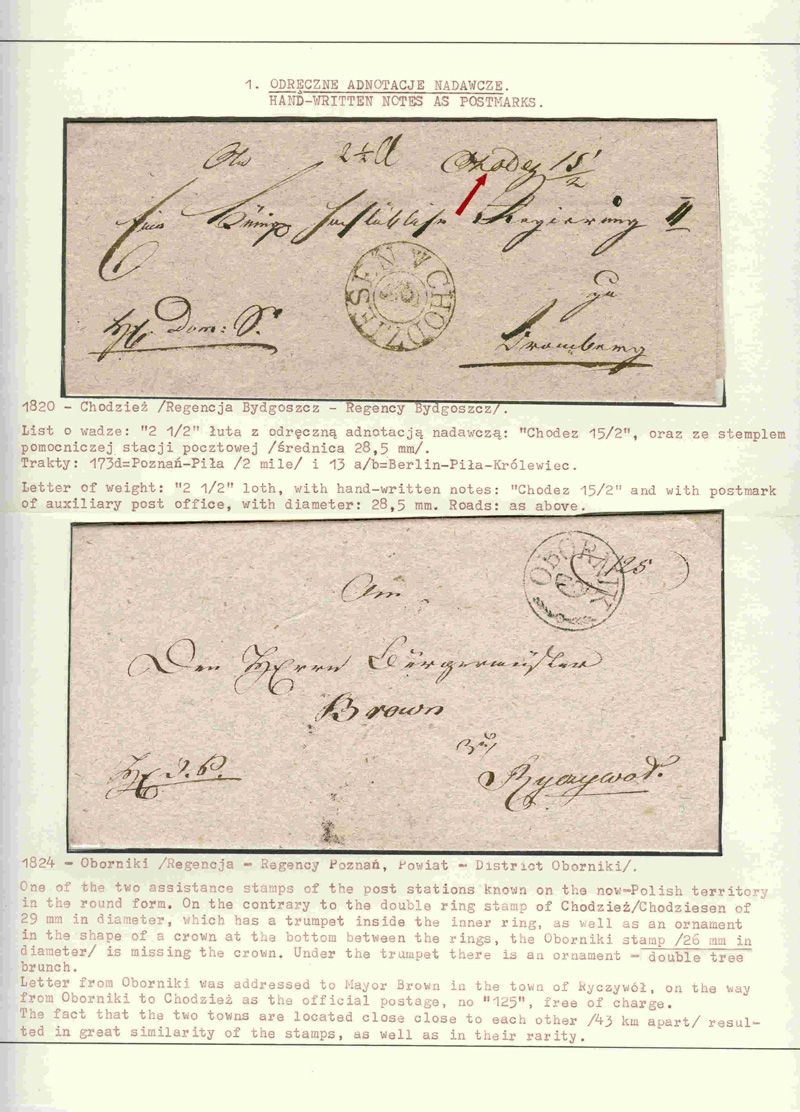 1. ODRĘCZNE ADNOTACJE NADAWCZE.
HAND-WRITTEN NOTES AS POSTMARKS.
2 1/2 Chodez 15/2
Regierung II
CHODZIESEN
zu
Dom: S.
Bromberg
1820 - Chodzież /Regencja Bydgoszcz - Regency Bydgoszcz/.
List o wadze: "2 1/2" łuta z odręczną adnotacją nadawczą: "Chodez 15/2", oraz ze stemplem
pomocniczej stacji pocztowej /średnica 28,5 mm/.
Trakty: 173d=Poznań-Piła /2 mile/ i 13 a/b=Berlin-Piła-Królewiec.
Letter of weight: "2 1/2" loth, with hand-written notes: "Chodez 15/2" and with postmark
of auxiliary post office, with diameter: 28,5 mm. Roads: as above.
OBORNIK
125
An
Den Herrn Bürgermeister
Brown
zu
Ryczywol.
1824 - Oborniki /Regencja - Regency Poznań, Powiat - District Oborniki/.
One of the two assistance stamps of the post stations known on the now=Polish territory
in the round form. On the contrary to the double ring stamp of Chodzież/Chodziesen of
29 mm in diameter, which has a trumpet inside the inner ring, as well as an ornament
in the shape of a crown at the bottom between the rings, the Oborniki stamp /26 mm in
diameter/ is missing the crown. Under the trumpet there is an ornament - double tree
brunch.
Letter from Oborniki was addressed to Mayor Brown in the town of Ryczywół, on the way
from Oborniki to Chodzież as the official postage, no "125", free of charge.
The fact that the two towns are located close close to each other /43 km apart/ resul-
ted in great similarity of the stamps, as well as in their rarity.